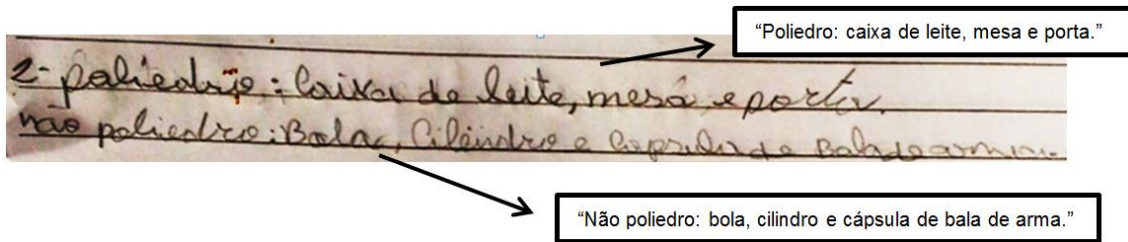 “Poliedro: caixa de leite, mesa e porta.”
2- poliedrio: Caixa de leite, mesa e porta.
não poliedro: Bola, Cilindro e Capsula de Bala de arma.
“Não poliedro: bola, cilindro e cápsula de bala de arma.”